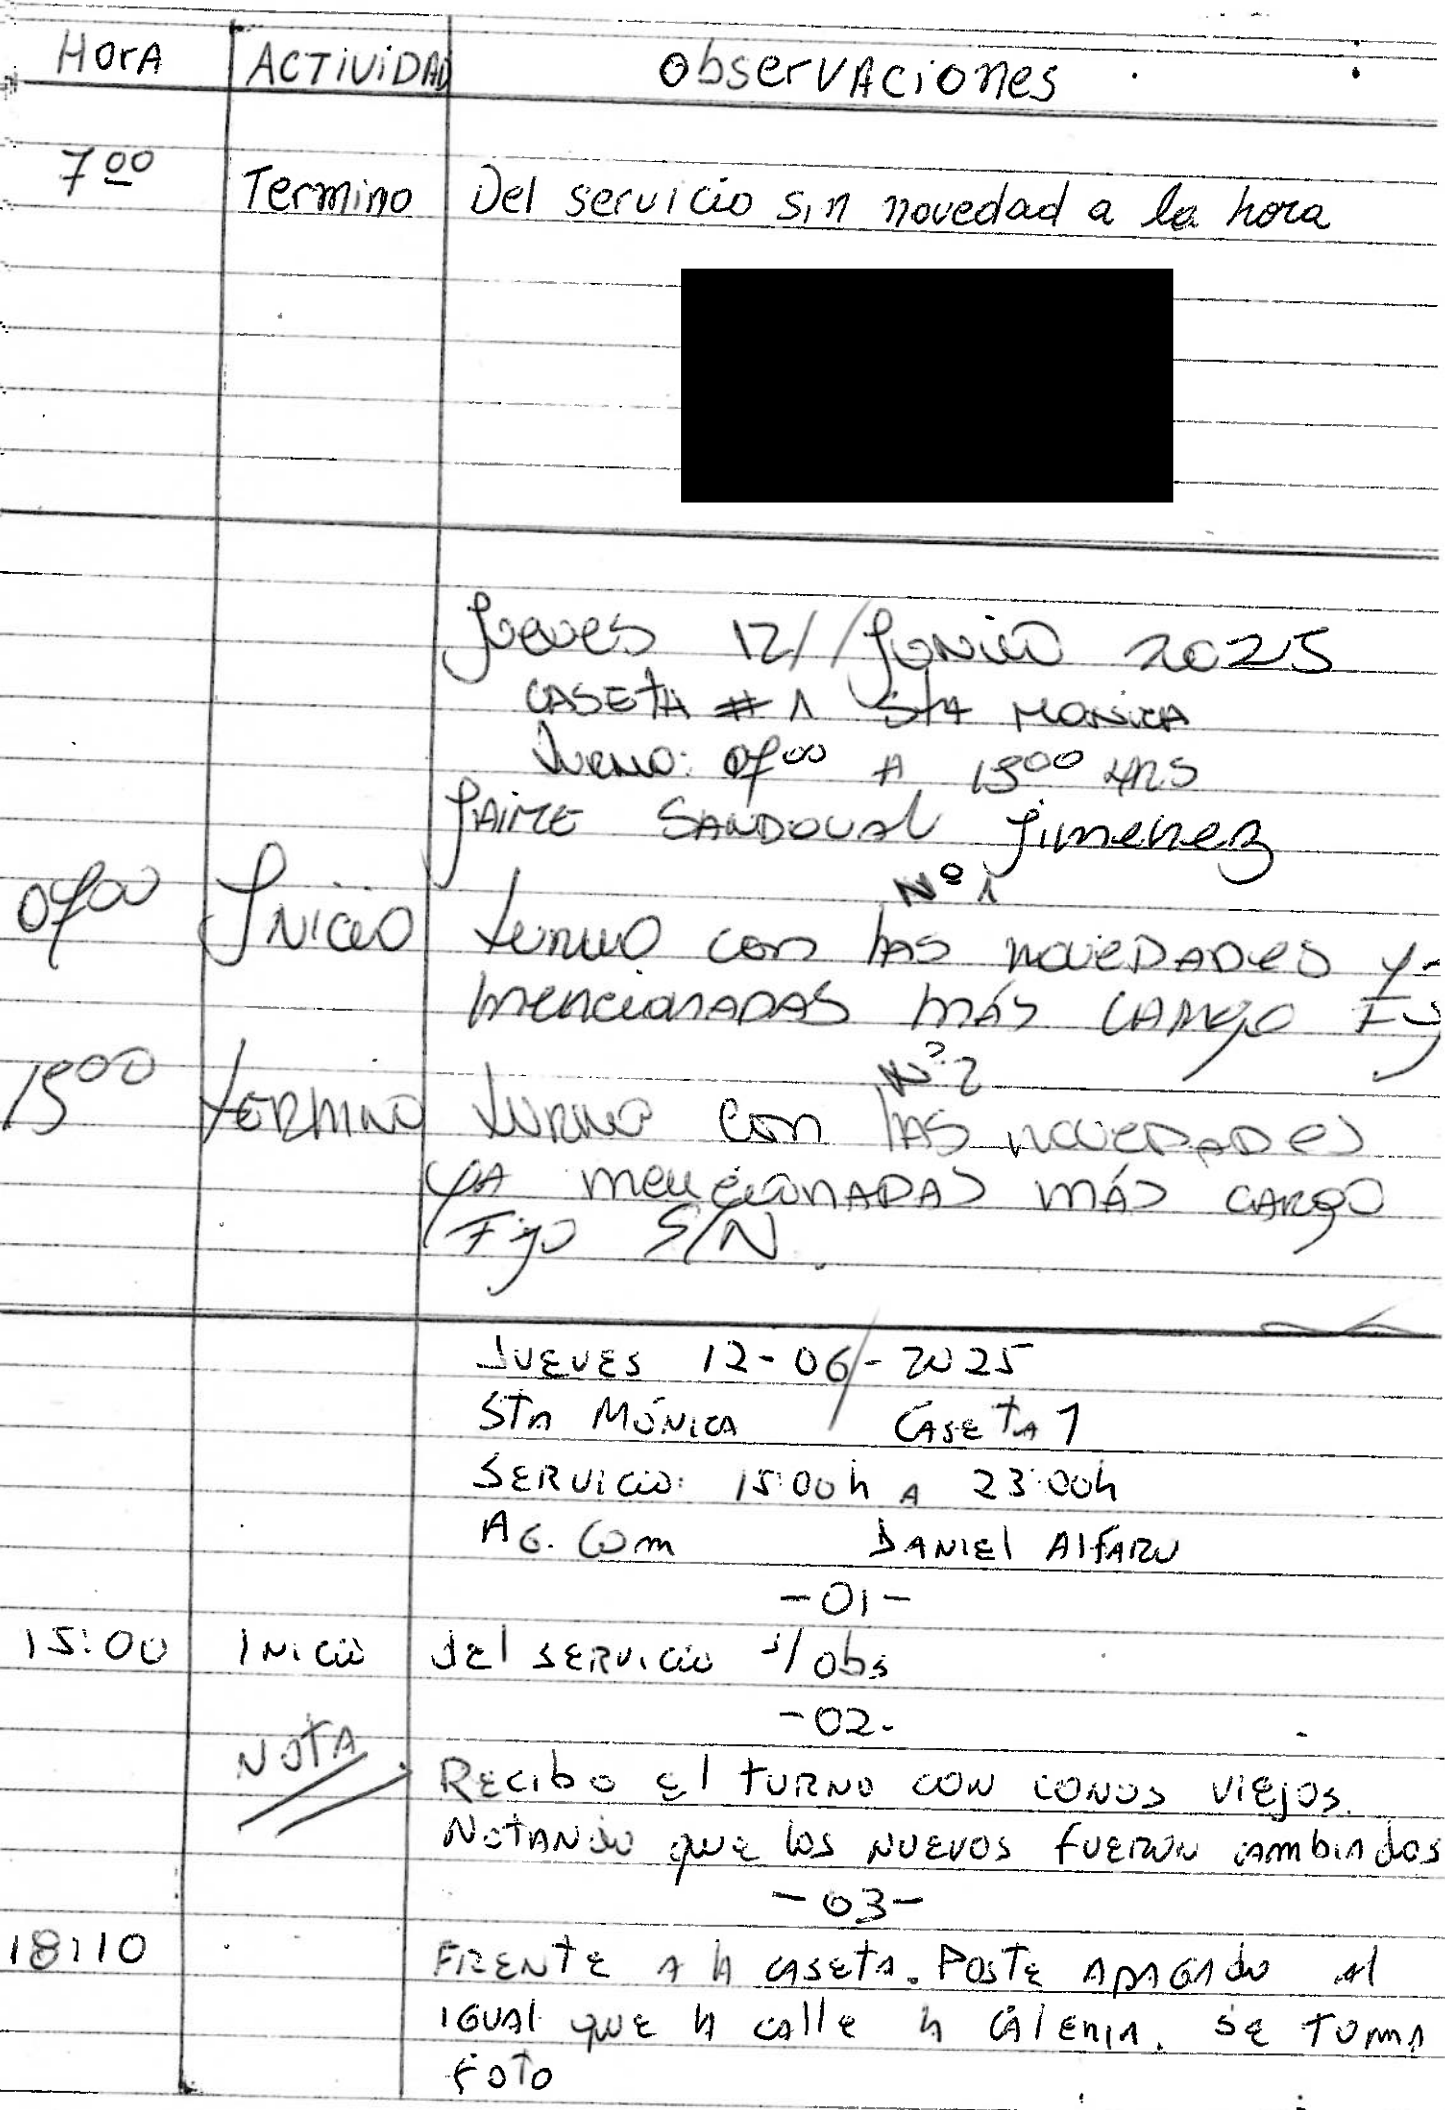 Hora ACTIVIDAD observaciones
7 00 Termino Del servicio sin novedad a la hora
Jueves 12//Junio 2025
CASETA # 1 Sta MONICA
turno: 0700 A 1500 HRS
JAIME SANDOVAL Jimenez
Nº 1
0700 INICIO turno con las NOVEDADES Y-
MENCIONADAS MÁS CARGO
Nº 2
1500 TERMINO turno con las NOVEDADES
YA MENCIONADAS MÁS CARGO
Fijo S/N.
JUEVES 12-06-2025
STA MÓNICA CASETA 1
SERVICIO: 15:00h A 23:00h
AG. Com DANIEl AlFARO
-01-
15:00 INICIO dEl SERVICIO s/obs
-02-
NOTA RECibo El TURNO CON CONOS VIEjOS.
NOTANdo quE los NUEVOS FUERON CAMbIAdos
-03-
18:10 FRENTE A lA CASETA. POSTE APAGAdo Al
IGUAl quE lA CAllE lA . SE TOMA
FOTO